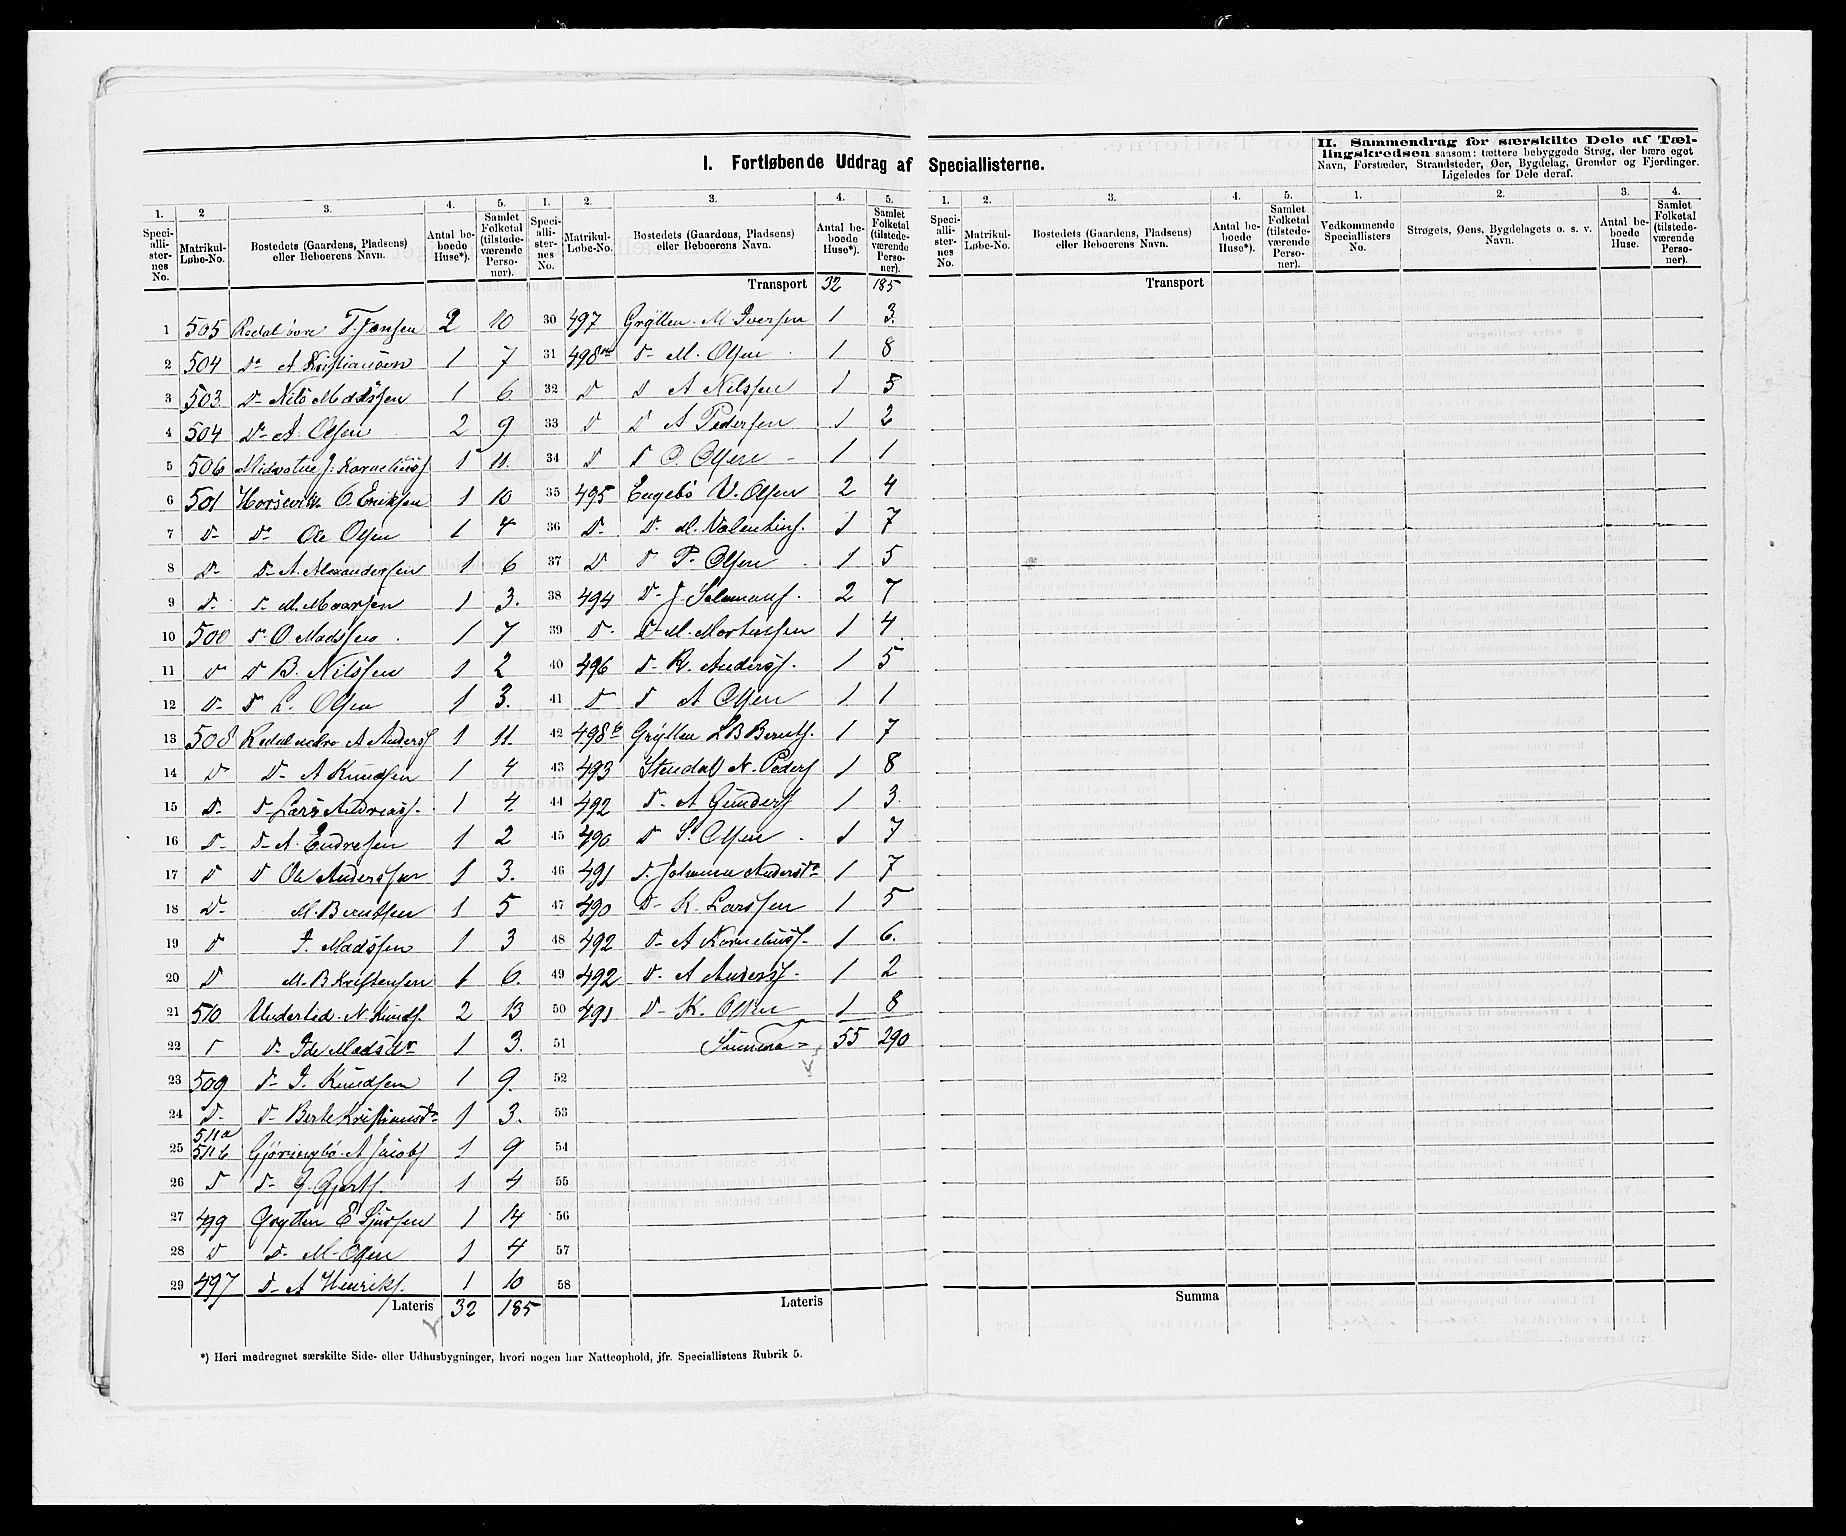 I. Fortløbende Uddrag af Speciallisterne.
II. Sammendrag for særskilte Dele af Tællingskredsen saasom: tættere bebyggede Strøg, der bære eget
Navn, Forstæder, Strandsteder, Øer, Bygdelag, Grender og Fjerdinger.
Ligeledes for Dele deraf.
1. Speciallisternes No. 2 Matrikul-Løbe-No. 3. Bostedets (Gaardens, Pladsens) eller Beboerens Navn. 4. Antal beboede Huse*). 5. Samlet Folketal (tilstedeværende Personer).
1 505 Redal övre T. Jensen 2 10
2 504 Do A Kristiansen 1 7
3 503 Do Nils Madssen 1 6
4 504 Do A. Olsen 2 9
5 506 Midvatne J. Korneliusf 1 11.
6 501 Horsevik O. Eriksen 1 10
7 D- Do Ole Olsen 1 4
8 D- D- A. Alexandersen 1 6
9 D- D- M. 1 3.
10 500 D. O Madssen 1 7
11 D D B. Nilssen 1 2
12 D- D L. Olsen 1 3.
13 508 Redal nedre A Andersf 1 11.
14 D D- A Knudsen 1 4
15 D- D Lars Andreasf. 1 4.
16 D- D- A. Endresen 1 2
17 D D Ole Anderssen 1 3.
18 D- M. Berntsen 1 5
19 D J. Madssen 1 3
20 D M. B Kristensen 1 6.
21 510 Underlid. N. Knudf. 2 13
22 D D- Ide Madsdr 1 3.
23 509 D- J. Knudsen 1 9.
24 D- D- Berte Kristiansdr 1 3.
25 511a 511b Gjöringbö A Jacobf 1 9
26 D D- G. Gjertf. 1 4
27 499 Grytten E Sjursen 1 14
28 D D- M. Olsen 1 4
29 497 D- A Hinrikf. 1 10
Lateris 32 185
1. Speciallisternes No. 2. Matrikul-Løbe-No. 3. Bostedets (Gaardens, Pladsens) eller Beboerens Navn. 4. Antal beboede Huse*). 5. Samlet Folketal (tilstedeværende Personer).
Transport 32 185
30 497 Grytten. M Iversen 1 3.
31 498 D- M. Olsen 1 8
32 D D A Nilssen 1 5
33 D D A Pedersen 1 2
34 D D O. Olsen 1 1
35 495 Engebö V. Olsen 2 4
36 D- D. M. Valentinf. 1 7
37 D D P. Olsen 1 5
38 494 D- J Salomonf. 2 7
39 D- D- M. Mortensen 1 4
40 496 D- R. Andersf. 1 5
41 D D A Olsen 1 1
42 498b Grytten L B Berntf. 1 7
43 493 Stendal N. Pedersf 1 8
44 492 D- A Gundersf 1 3
45 490 D S. Olsen 1 7
46 491 D. Johanna Andersdr 1 7
47 490 D- K. Larssen 1 5
48 492 D- A Korneliusf. 1 6.
49 492 D- A Andersf. 1 2
50 491 D- K. Olsen 1 8
51 Summa = 55 290
52
53
54
55
56
57
58
Lateris
1. Speciallisternes No. 2. Matrikul-Løbe-No. 3. Bostedets (Gaardens, Pladsens) eller Beboerens Navn. 4. Antal beboede Huse*). 5. Samlet Folketal (tilstedeværende Personer).
Transport
Summa
1. Vedkommende Speciallisters No. 2. Strøgets, Øens, Bygdelagets o. s. v. Navn. 3. Antal beboede Huse. 4. Samlet Folketal (tilstedeværende Personer).
*) Heri medregnet særskilte Side- eller Udhusbygninger, hvori nogen har Natteophold, jfr. Speciallistens Rubrik 5.